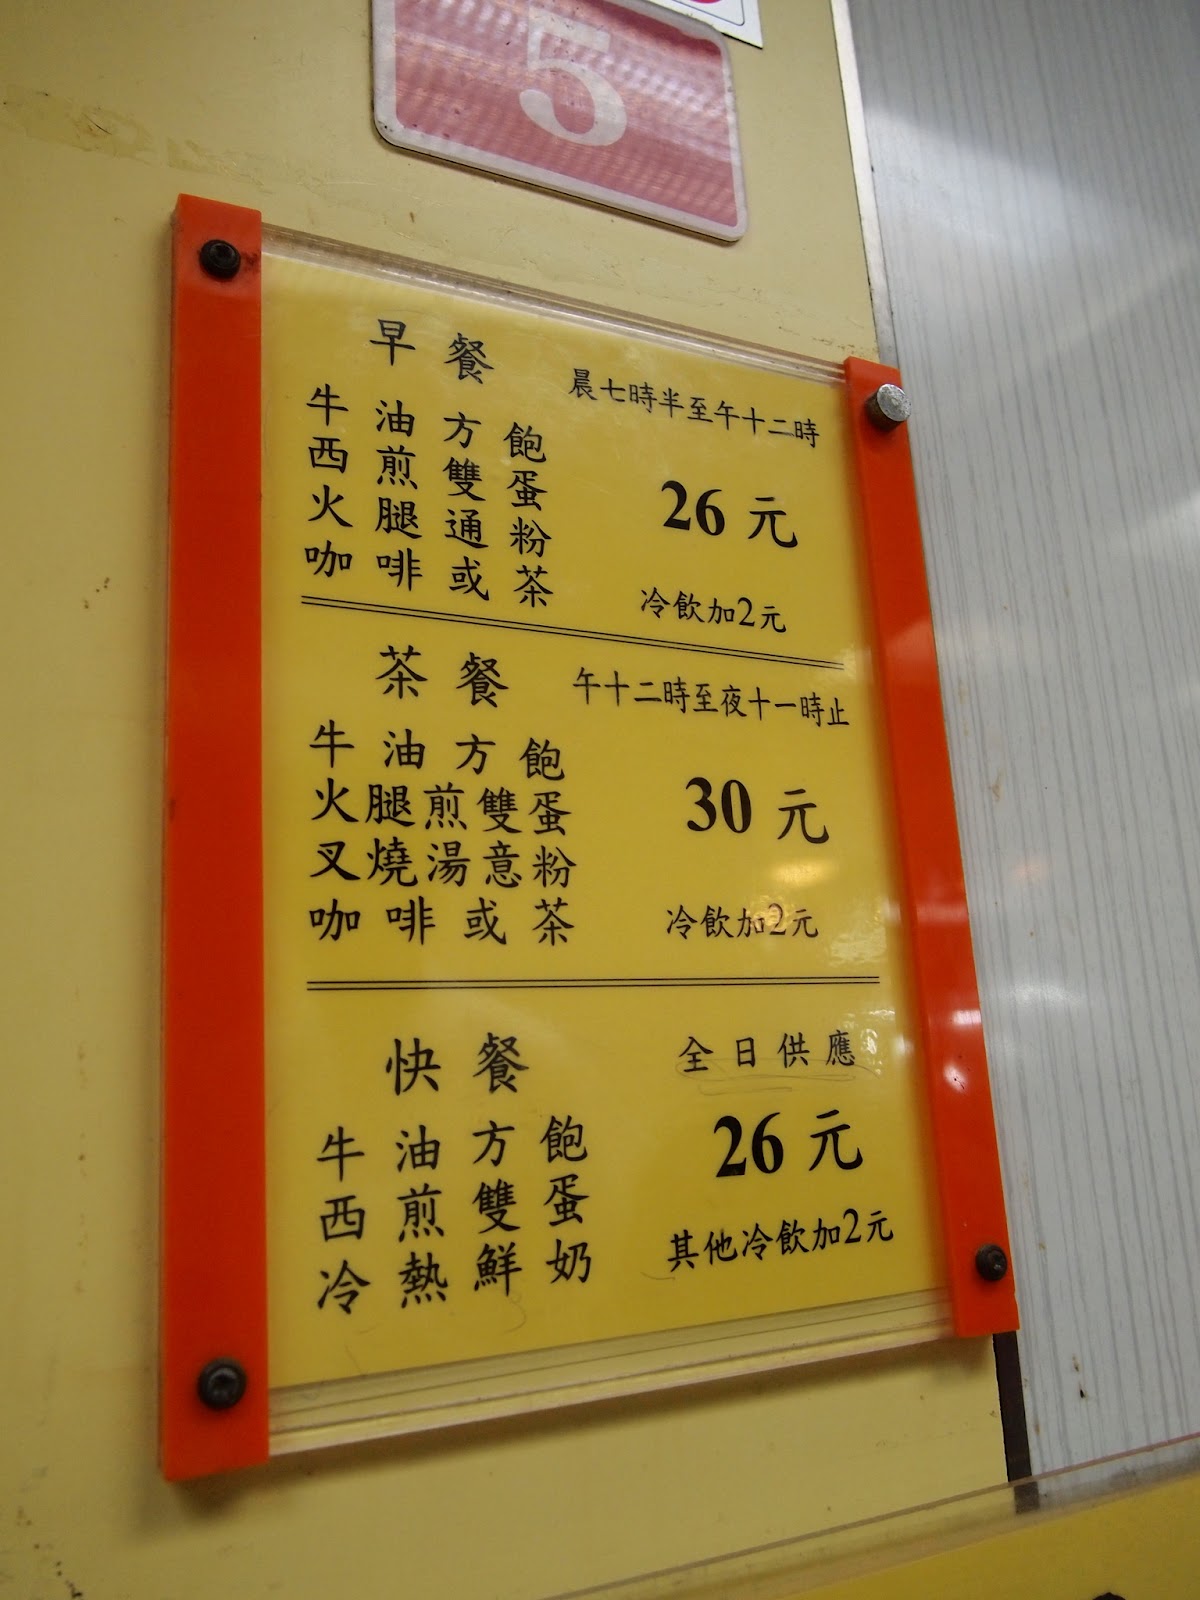 5
早餐
晨七時半至午十二時
牛油方飽
西煎雙蛋
火腿通粉
咖啡或茶
26元
冷飲加2元
茶餐
午十二時至夜十一時止
牛油方飽
火腿煎雙蛋
叉燒湯意粉
咖啡或茶
30元
冷飲加2元
快餐
全日供應
牛油方飽
西煎雙蛋
冷熱鮮奶
26元
其他冷飲加2元